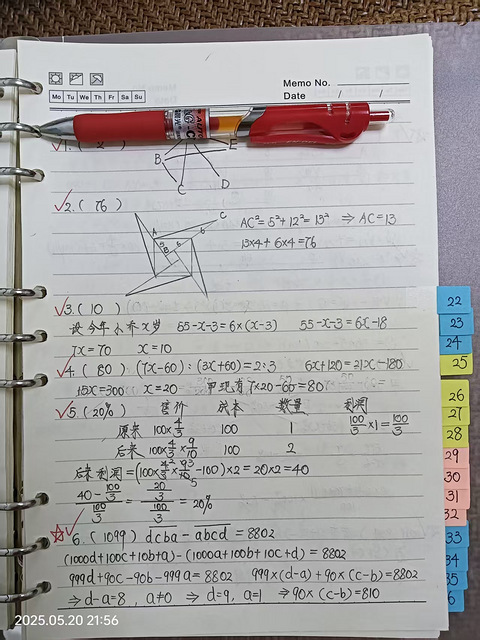 Memo No.
Mo Tu We Th Fr Sa Su
Date / /
1. ( 2 )
E
B
C
D
2. ( 76 )
A
B
C
5
6
6
AC²=5²+12²=13² ⇒ AC=13
13×4+6×4=76
3. ( 10 )
设今年小乔X岁 55-X-3=6×(X-3) 55-X-3=6X-18
7X=70 X=10
4. ( 80 ) (7X-60):(3X+60)=2:3 6X+120=21X-180
15X=300 X=20 甲现有7×20-60=80
5. (20%) 售价 成本 数量 利润
原来 100×4/3 100 1 100/3×1=100/3
后来 100×4/3×9/10 100 2
后来利润=(100×4/3×9/10-100)×2=20×2=40
(40-100/3)/(100/3)=(20/3)/(100/3)=20%
6. (1099) dcba - abcd = 8802
(1000d+100c+10b+a)-(1000a+100b+10c+d)=8802
999d+90c-90b-999a=8802 999×(d-a)+90×(c-b)=8802
⇒ d-a=8, a≠0 ⇒ d=9, a=1 ⇒90×(c-b)=810
22
23
24
25
26
27
28
29
30
31
32
33
34
35
6
2025.05.20 21:56